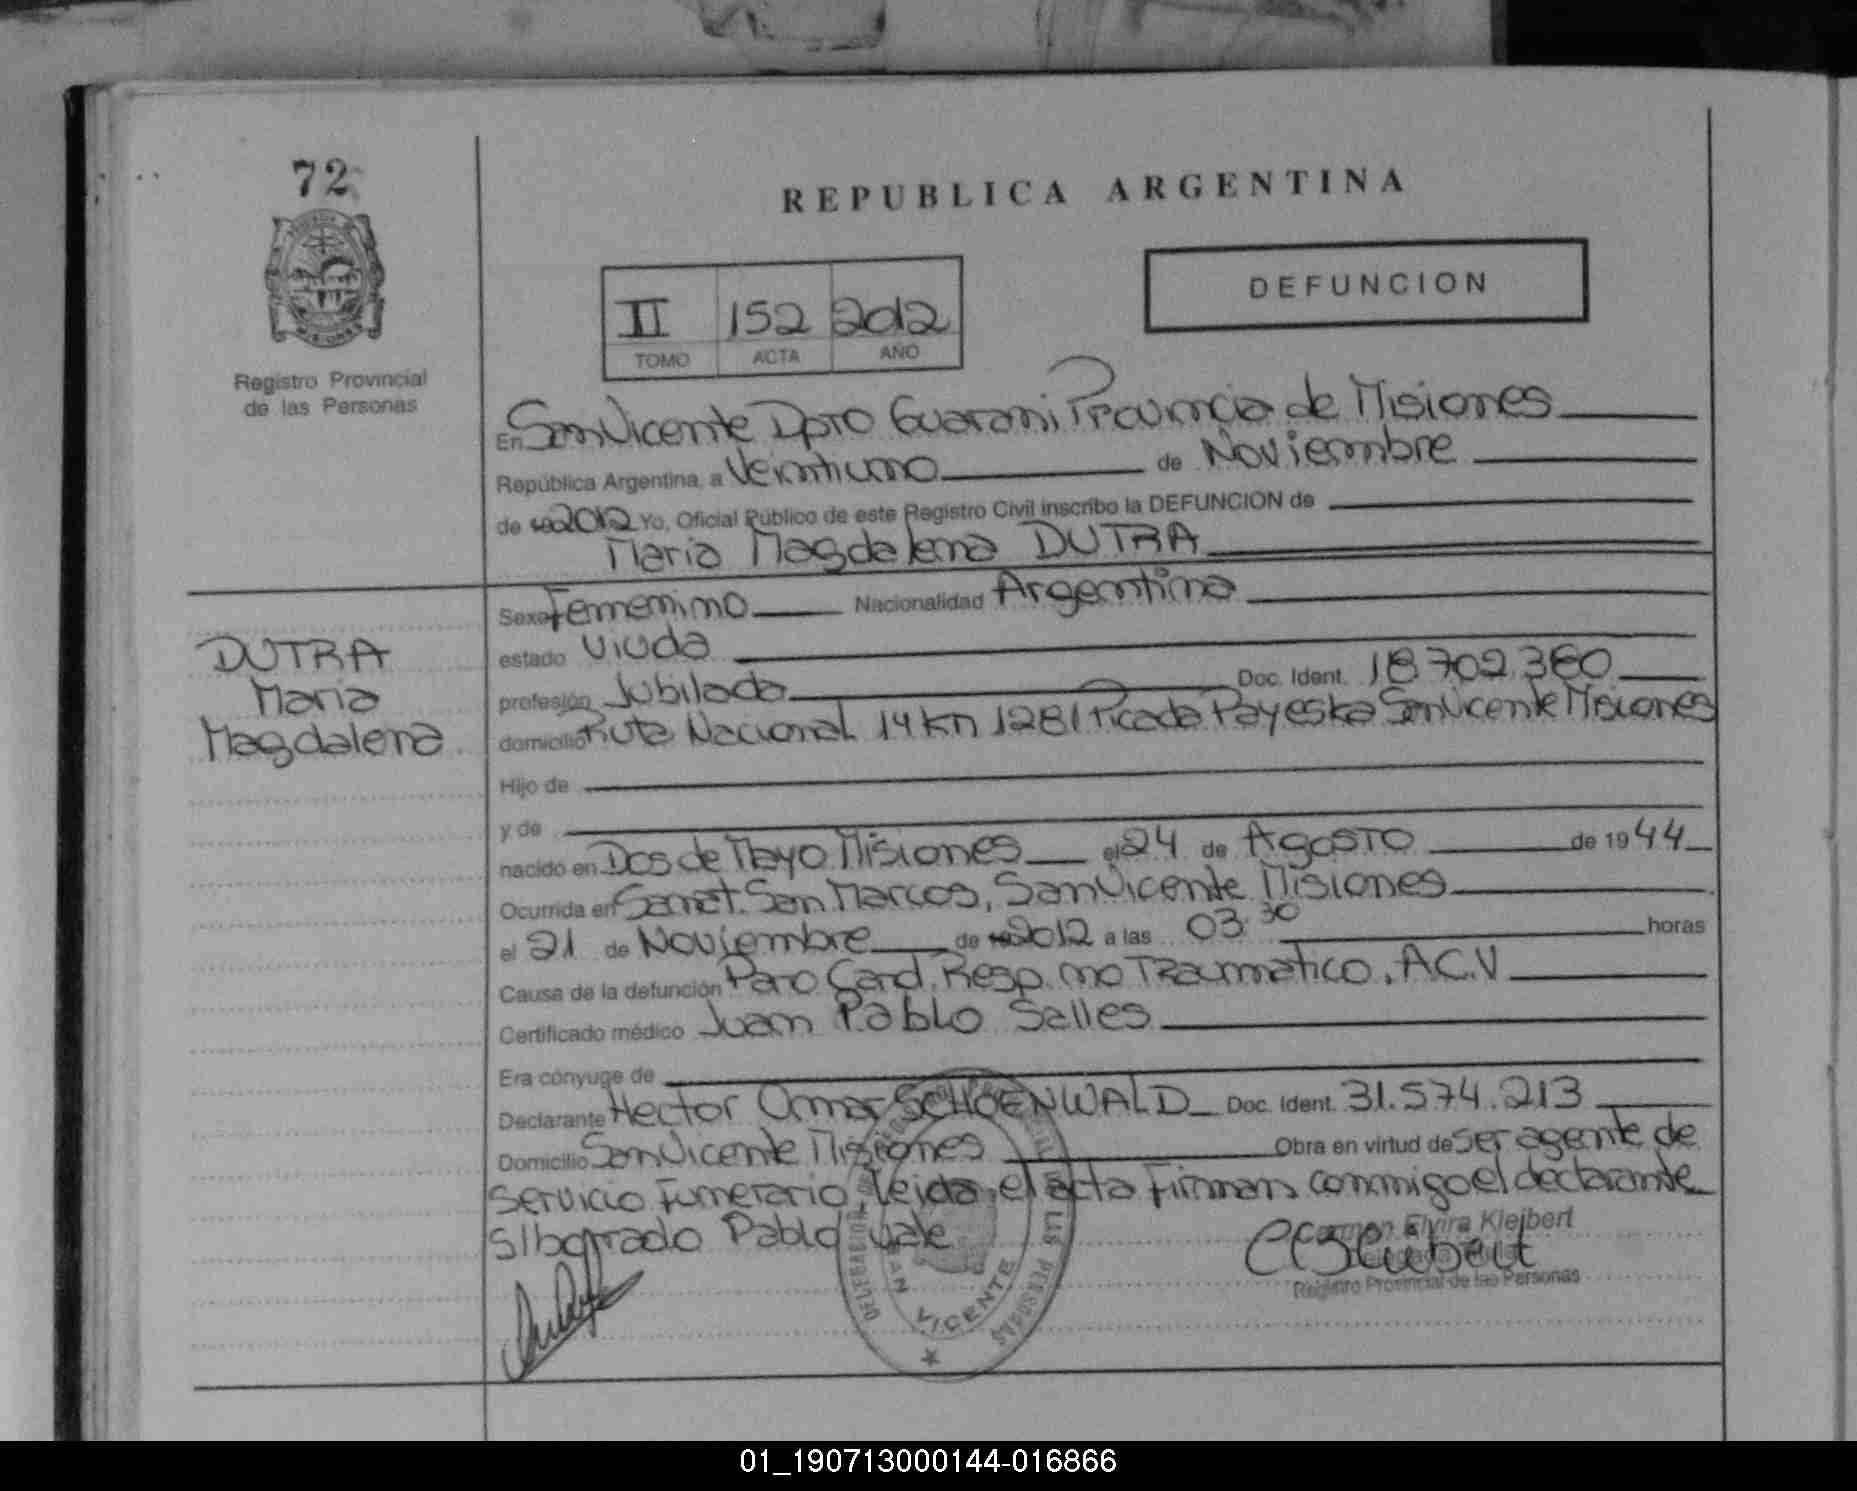 72
REPUBLICA ARGENTINA
DEFUNCION
II 152 2012
TOMO ACTA AÑO
Registro Provincial
de las Personas
En San Vicente Dpto Guarani Provincia de Misiones
República Argentina, a Veintiuno de Noviembre
de 2012 Yo, Oficial Público de este Registro Civil inscribo la DEFUNCION de
Maria Magdalena DUTRA
Sexo Femenino Nacionalidad Argentina
estado Viuda
profesión Jubilada Doc. Ident. 18 702.380
domicilio Ruta Nacional 14 Km 1281 Picada Payeska San Vicente Misiones
DUTRA
Maria
Magdalena
Hijo de
y de
nacido en Dos de Mayo Misiones el 24 de Agosto de 1944
Ocurrida en Sanat. San Marcos, San Vicente Misiones
el 21 de Noviembre de 2012 a las 03:30 horas
Causa de la defunción Paro Card. Resp. no Traumatico. A.C.V
Certificado médico Juan Pablo Salles
Era cónyuge de
Declarante Hector Omar SCHOENWALD Doc. Ident. 31.574.213
Domicilio San Vicente Misiones Obra en virtud de ser agente de
servicio Funerario, leida el acta Firman conmigo el declarante
S/borrado Pablo vale
Carmen Elvira Kleibert
Registro Provincial de las Personas
SAN VICENTE
01_190713000144-016866